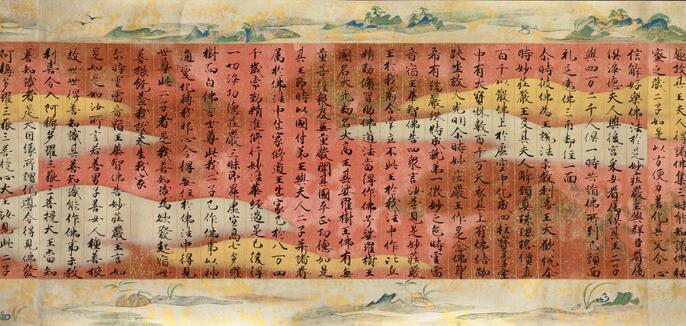 趣故其王夫人得諸佛集三昧能知諸佛秘
密之藏二子如是以方便力善化其父令心
信解好樂佛法於是妙莊嚴王與群臣眷屬
俱淨德夫人與後宮采女眷屬俱其王二子
與四万二千人俱一時共詣佛所到已頭面
礼足繞佛三帀却住一面
尒時彼佛為王說法示教利喜王大歡悅尒
時妙莊嚴王及其夫人解頸真珠瓔珞價直
百千以散佛上於虛空中化成四柱寶臺臺
中有大寶床敷百千万天衣其上有佛結跏
趺坐放大光明尒時妙莊嚴王作是念佛身
希有端嚴殊特成就第一微妙之色時雲雷
音宿王華智佛告四眾言汝等見是妙莊嚴
王於我前合掌立不此王於我法中作比丘
精勤修習助佛道法當得作佛号娑羅樹王
國名大光劫名大高王其娑羅樹王佛有無
量菩薩眾及無量聲聞其國平正功德如是
其王即時以國付弟與夫人二子并諸眷
屬於佛法中出家修道王出家已於八万四
千歲常勤精進修行妙法華經過是已後得
一切淨功德莊嚴三昧即昇虛空高七多羅
樹而白佛言世尊此我二子已作佛事以神
通變化轉我邪心令得安住於佛法中得見
世尊此二子者是我善知識為欲發起宿世
善根饒益我故來生我家
尒時雲雷音宿王華智佛告妙莊嚴王言如
是如是如汝所言若善男子善女人種善根
故世世得善知識其善知識能作佛事示教
利喜令入阿耨多羅三藐三菩提大王當知
善知識者是大因緣所謂化導令得見佛發
阿耨多羅三藐三菩提心大王汝見此二子